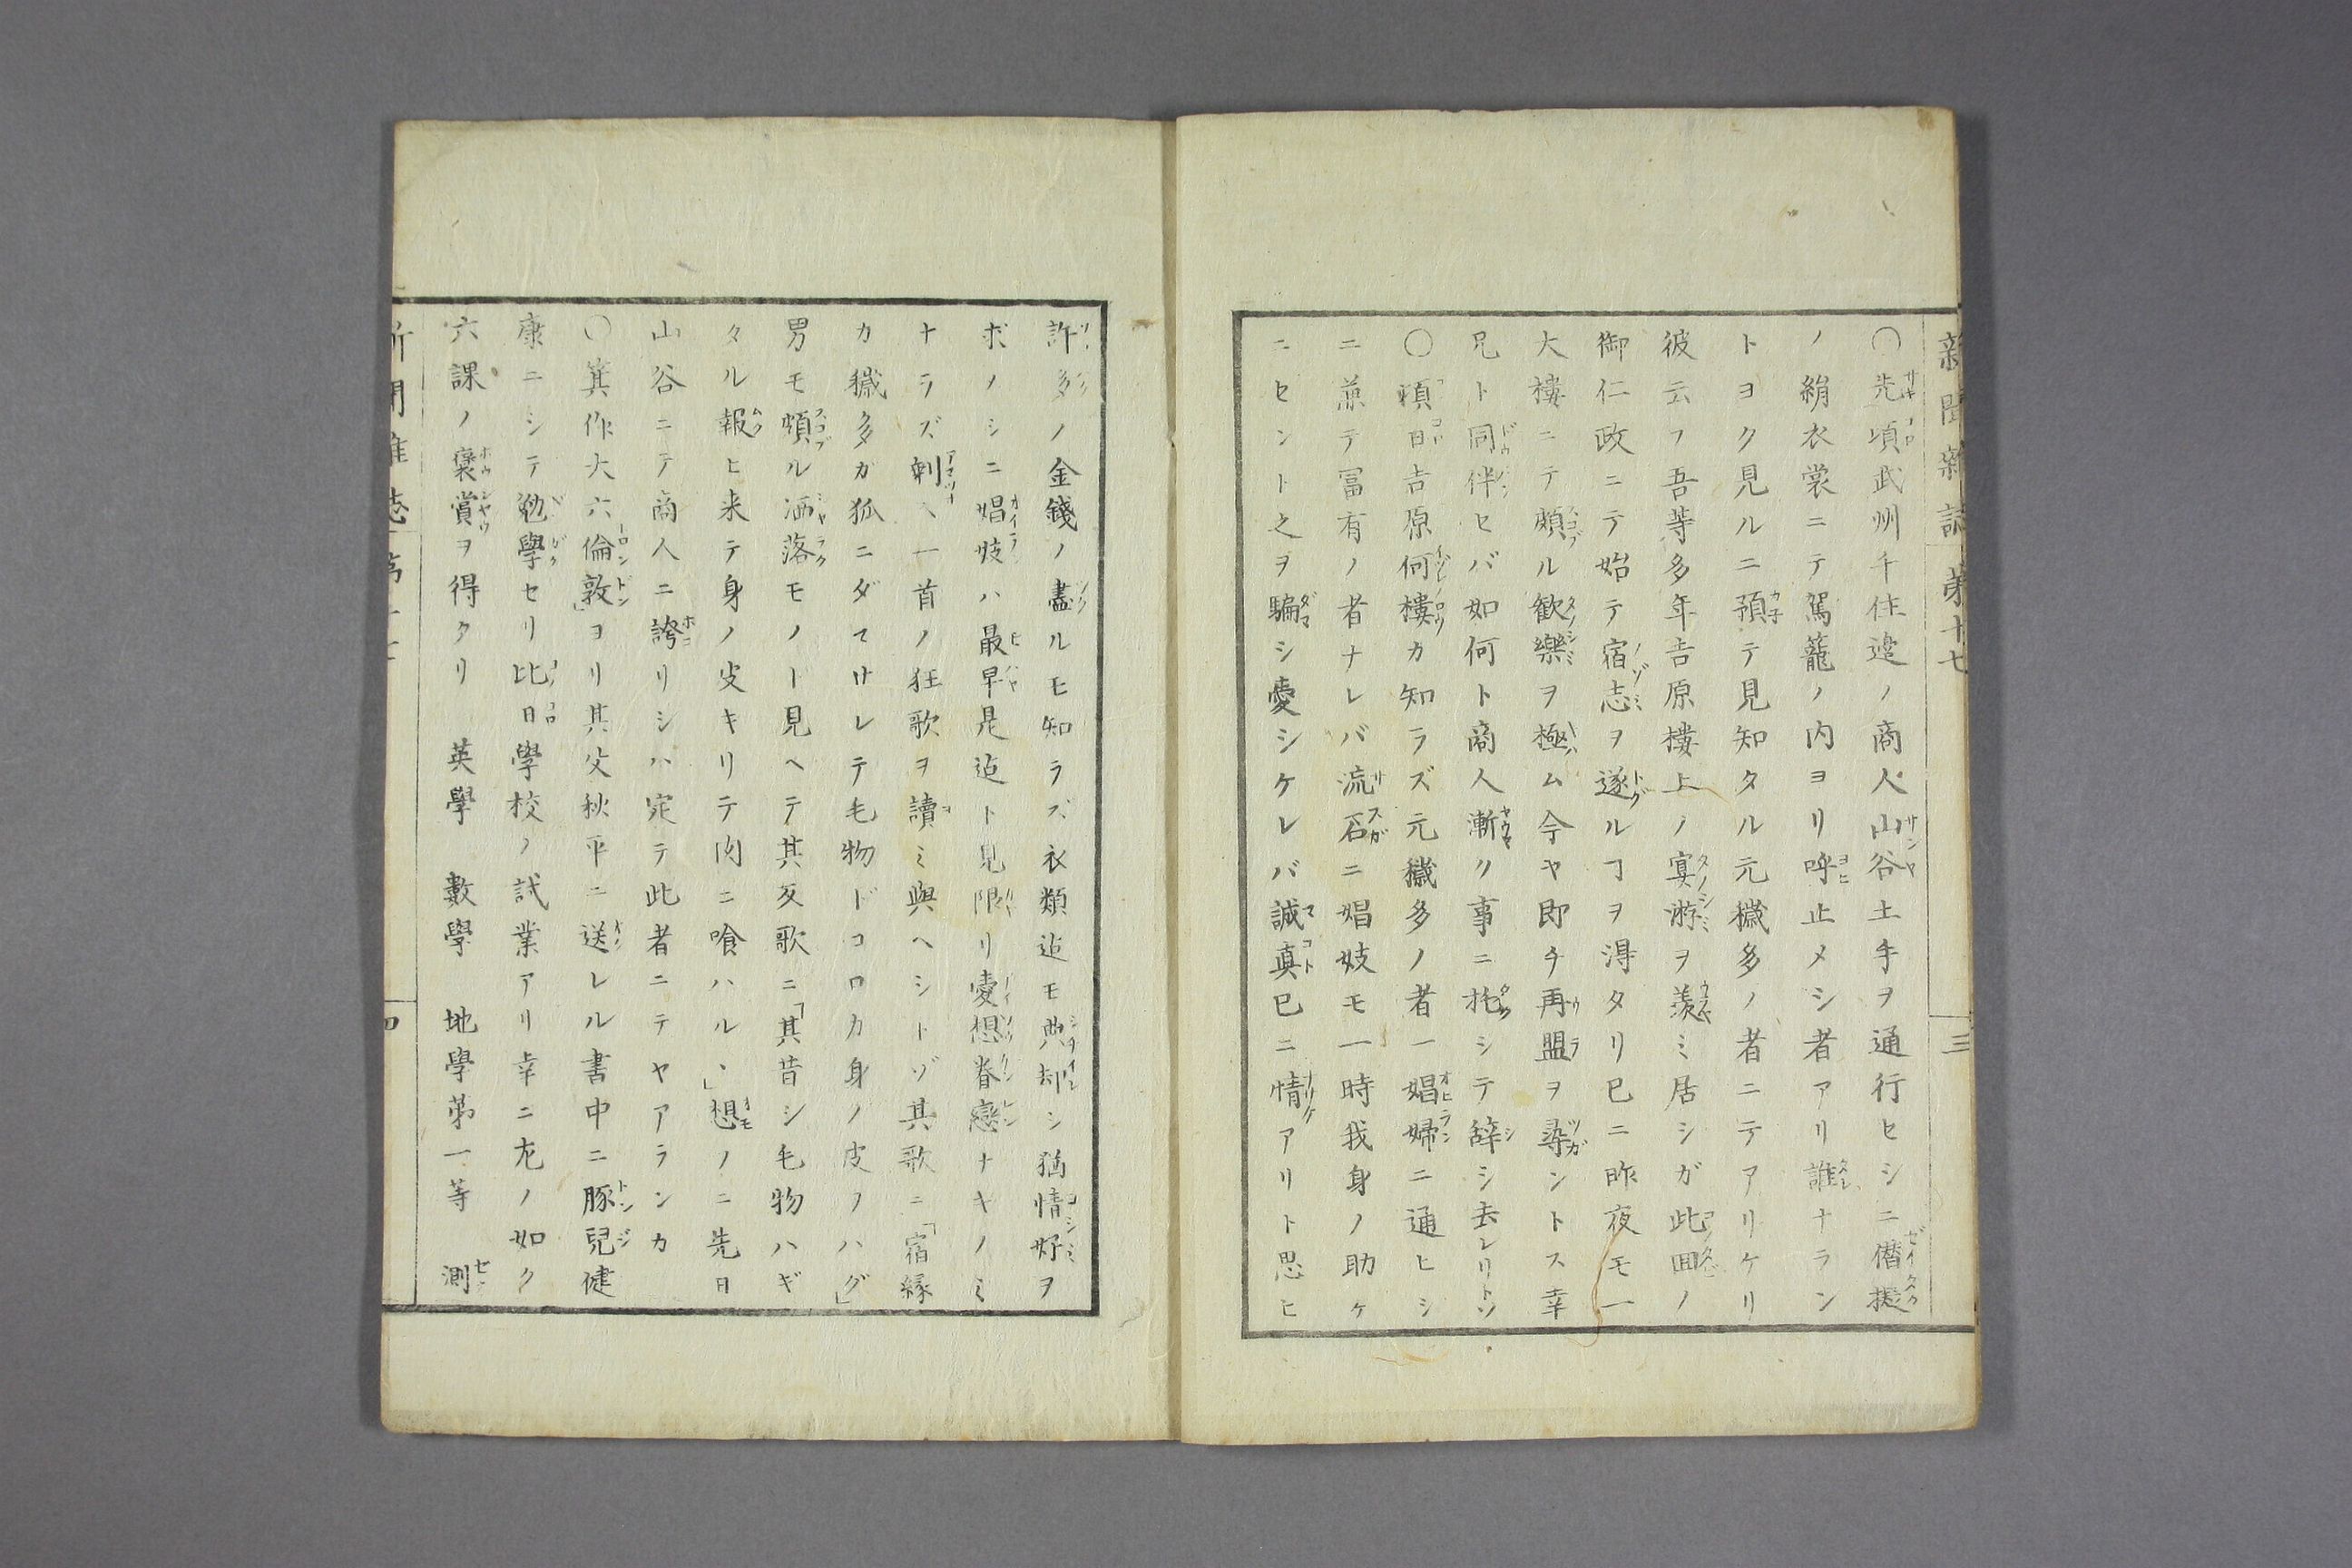 新聞雜誌 第十七 三
〇先頃武州千住邉ノ商人山谷土手ヲ通行セシニ僣擬
ノ絹衣裳ニテ駕籠ノ内ヨリ呼止メシ者アリ誰ナラン
トヨク見ルニ預テ見知タル元穢多ノ者ニテアリケリ
彼云フ吾等多年吉原樓上ノ宴游ヲ羨ミ居シガ此回ノ
御仁政ニテ始テ宿志ヲ遂ルヿヲ淂タリ已ニ昨夜モ一
大樓ニテ頗ル歓樂ヲ極ム今ヤ即チ再盟ヲ尋ントス幸
兄ト同伴セバ如何ト商人漸ク事ニ托シテ辞シ去レリトソ
〇頃日吉原何樓カ知ラズ元穢多ノ者一娼婦ニ通ヒシ
ニ兼テ冨有ノ者ナレバ流石ニ娼妓モ一時我身ノ助ケ
ニセント之ヲ騙シ愛シケレバ誠真已ニ情アリト思ヒ
許多ノ金錢ノ盡ルモ知ラズ衣類迠モ典却シ猶情好ヲ
ボノシニ娼妓ハ最早是迠ト見限リ愛想眷戀ナキノミ
ナラズ剰ヘ一首ノ狂歌ヲ讀ミ與ヘシトゾ其歌ニ「宿縁
カ穢多ガ狐ニダマサレテ毛物ドコロカ身ノ皮ノハグ」
男モ頗ル洒落モノト見ヘテ其亥歌ニ「其昔シ毛物ハギ
タル報ヒ来テ身ノ皮キリテ肉ニ喰ハル、」想ノニ先日
山谷ニテ商人ニ誇リシハ定テ此者ニテヤアランカ
〇箕作大六倫敦ヨリ其父秋平ニ送レル書中ニ豚兒健
康ニシテ勉學セリ比日學校ノ試業アリ幸ニ左ノ如ク
六課ノ褒賞ヲ得タリ 英學 數學 地學第一等 測